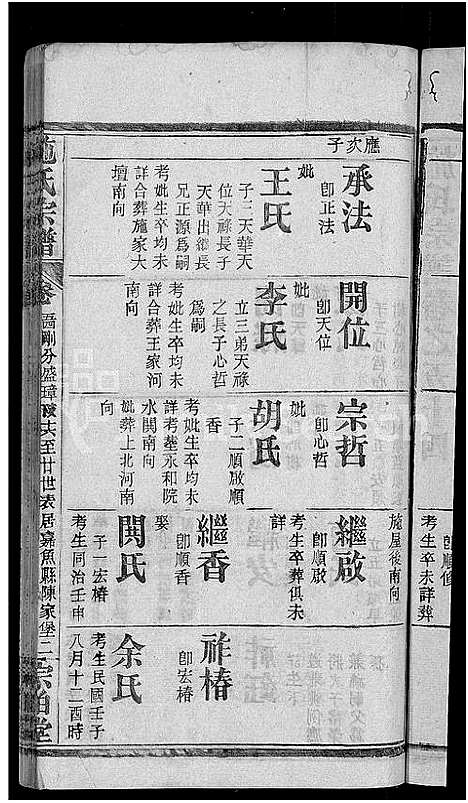 考生卒未詳葬
施屋後南向
應次子
承法
卽正法
妣
王氏
子二天華天
位天祿長子
天華出繼長
兄正源爲嗣
考妣生卒均未
詳合葬施家大
壇南向
開位
卽天位
妣
李氏
立三弟天祿
之長子心哲
爲嗣
考妣生卒均未
詳合葬王家河
南向
宗哲
卽心哲
妣
胡氏
子二順啟順
香
考妣生卒均未
詳考塟永和院
水閣南向
妣葬上北河南
向
繼啟
卽順啟
考生卒葬俱未
詳
繼香
卽順香
娶
閔氏
子一宏椿
考生同治壬申
祚椿
卽宏椿
余氏
考生民國壬子
八月十二酉時
施氏宗譜
卷
分盛璋
至廿世表居嘉魚縣陳家堡二